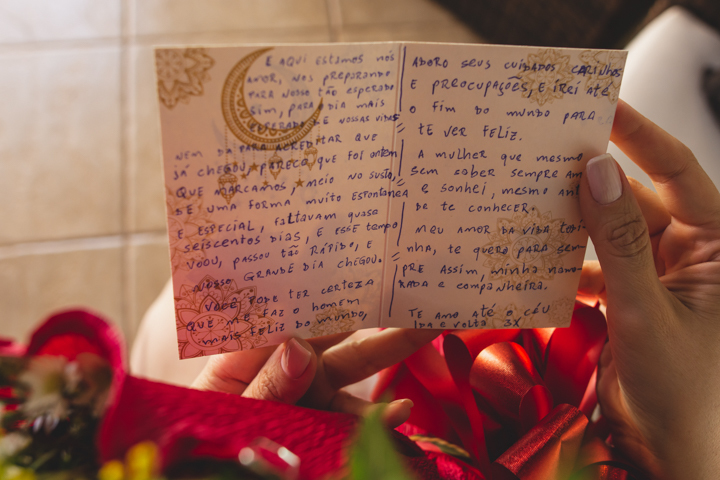 E AQUI ESTAMOS NÓS
AMOR, NOS PREPARANDO
PARA NOSSO TÃO ESPERADO
SIM, PARA DIA MAIS
ESPERADO DE NOSSAS VIDAS
NEM DA PARA ACREDITAR QUE
JÁ CHEGOU, PARECE QUE FOI ONTEM
QUE MARCAMOS, MEIO NO SUSTO,
DE UMA FORMA MUITO ESPONTANEA
E ESPECIAL, FALTAVAM QUASE
SEISCENTOS DIAS, E ESSE TEMPO
VOOU, PASSOU TÃO RÁPIDO, E
NOSSO GRANDE DIA CHEGOU.
VOCÊ PODE TER CERTEZA
QUE ME FAZ O HOMEM
MAIS FELIZ DO MUNDO,
ADORO SEUS CUIDADOS CARINHOS
E PREOCUPAÇÕES, E IREI ATÉ
O FIM DO MUNDO PARA
TE VER FELIZ.
A MULHER QUE MESMO
SEM SABER SEMPRE AM
E SONHEI, MESMO ANT
DE TE CONHECER.
MEU AMOR DA VIDA TODI-
NHA, TE QUERO PARA SEM-
PRE ASSIM, MINHA NAMO-
RADA E COMPANHEIRA.
TE AMO ATÉ O CÉU
IDA E VOLTA 3X